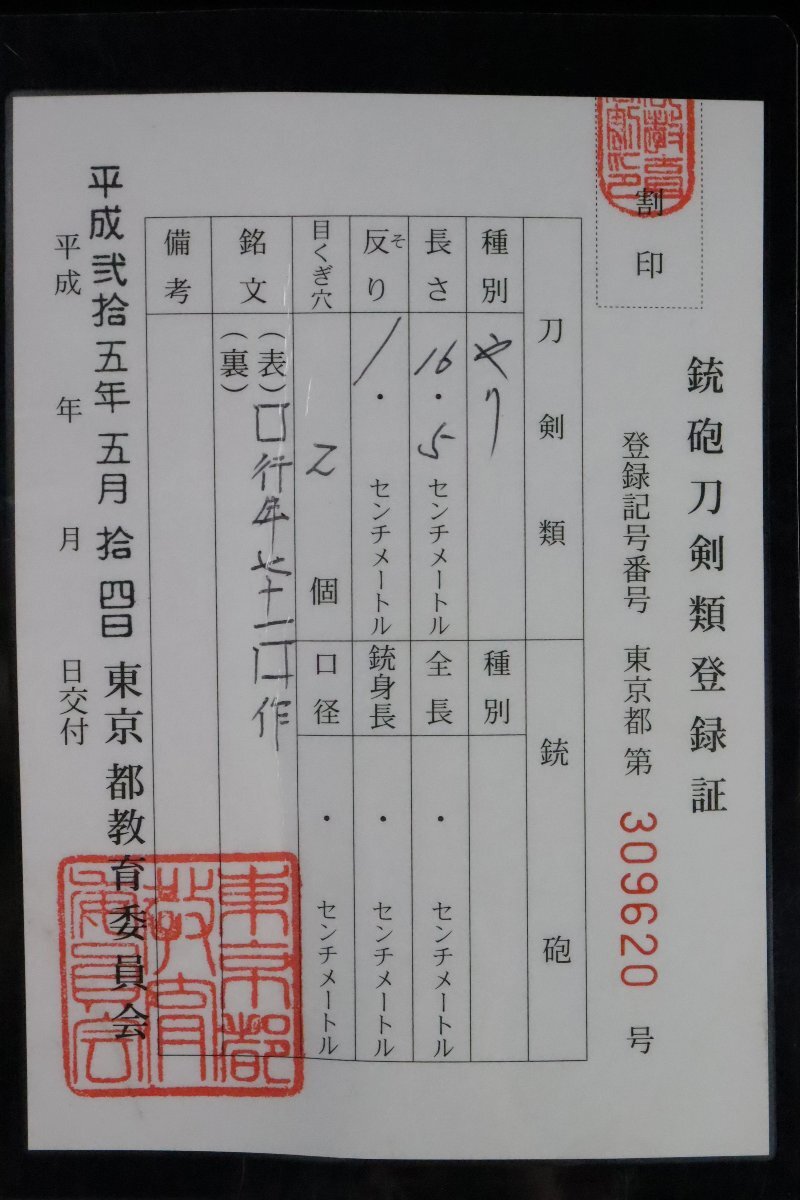 割印
銃砲刀剣類登録証
登録記号番号 東京都 第 309620 号
刀剣類
種別 やり
長さ 16.5 センチメートル
反り そ / . センチメートル
目くぎ穴 2 個
銘文 (表) □行年七十一□作
(裏)
備考
銃砲
種別
全長 ・ センチメートル
銃身長 ・ センチメートル
口径 ・ センチメートル
平成弐拾五年五月拾四日
平成 年 月 日交付
東京都教育委員会
東京都教育委員会